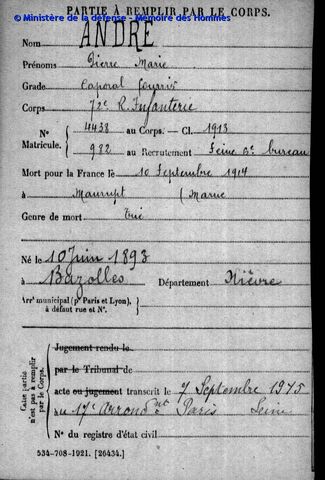 © Ministère de la défense - Mémoire des Hommes
PARTIE À REMPLIR PAR LE CORPS.
Nom ANDRÉ
Prénoms Pierre Marie
Grade Caporal fourrier
Corps 72e R. Infanterie
N° 4438 au Corps. — Cl. 1913
Matricule. 982 au Recrutement Seine 3e bureau
Mort pour la France le 10 Septembre 1914
à Maurupt (Marne
Genre de mort Tué
Né le 10 Juin 1893
à Bazolles Département Nièvre
Arrt municipal (pr Paris et Lyon), à défaut rue et N°.
Cette partie n'est pas à remplir par le Corps.
Jugement rendu le
par le Tribunal de
acte ou jugement transcrit le 7 Septembre 1915
au 17e Arrond t Paris Seine
N° du registre d'état civil
534-708-1921. [26434.]